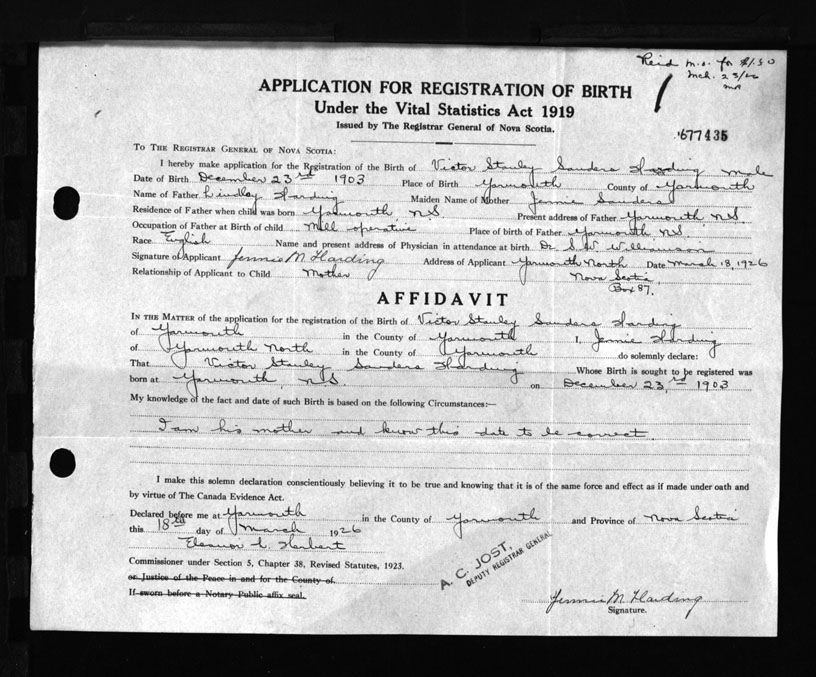 Reid m.o. for $1.50
Mch. 23/26
APPLICATION FOR REGISTRATION OF BIRTH
Under the Vital Statistics Act 1919
Issued by The Registrar General of Nova Scotia.
677435
TO THE REGISTRAR GENERAL OF NOVA SCOTIA:
I hereby make application for the Registration of the Birth of Victor Stanley Sanders Harding Male
Date of Birth December 23rd 1903 Place of Birth Yarmouth County of Yarmouth
Name of Father Lindley Harding Maiden Name of Mother Jennie Sanders
Residence of Father when child was born Yarmouth, N.S. Present address of Father Yarmouth N.S.
Occupation of Father at Birth of child Mill operative Place of birth of Father Yarmouth N.S.
Race English Name and present address of Physician in attendance at birth Dr. S.W. Williamson
Signature of Applicant Jennie M Harding Address of Applicant Yarmouth North Date March 18, 1926
Relationship of Applicant to Child Mother Nova Scotia,
Box 87.
AFFIDAVIT
IN THE MATTER of the application for the registration of the Birth of Victor Stanley Sanders Harding
of Yarmouth in the County of Yarmouth I, Jennie Harding
of Yarmouth North in the County of Yarmouth do solemnly declare:
That Victor Stanley Sanders Harding Whose Birth is sought to be registered was
born at Yarmouth, N.S. on December 23,rd 1903
My knowledge of the fact and date of such Birth is based on the following Circumstances:—
I am his mother and know this date to be correct.
I make this solemn declaration conscientiously believing it to be true and knowing that it is of the same force and effect as if made under oath and
by virtue of The Canada Evidence Act.
Declared before me at Yarmouth in the County of Yarmouth and Province of Nova Scotia
this 18th day of March 1926
Eleanor L. Herbert
Commissioner under Section 5, Chapter 38, Revised Statutes, 1923.
or Justice of the Peace in and for the County of
If sworn before a Notary Public affix seal.
A. C. JOST,
DEPUTY REGISTRAR GENERAL
Jennie M Harding
Signature.